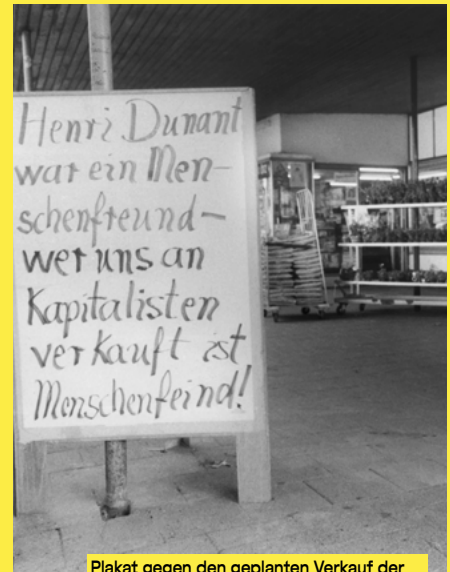 Henri Dunant
war ein Men-
schenfreund-
wer uns an
Kapitalisten
verkauft ist
Menschenfeind!
Plakat gegen den geplanten Verkauf der